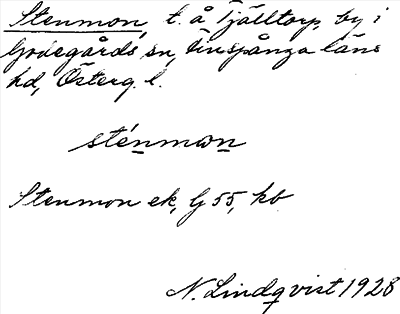 Stenmon, t. å Fjälltorp, by i
Godegårds sn, Finspånga läns
hd, Österg. l.
sténmωn
Stenmon ek, G 55, kb
N. Lindqvist 1928